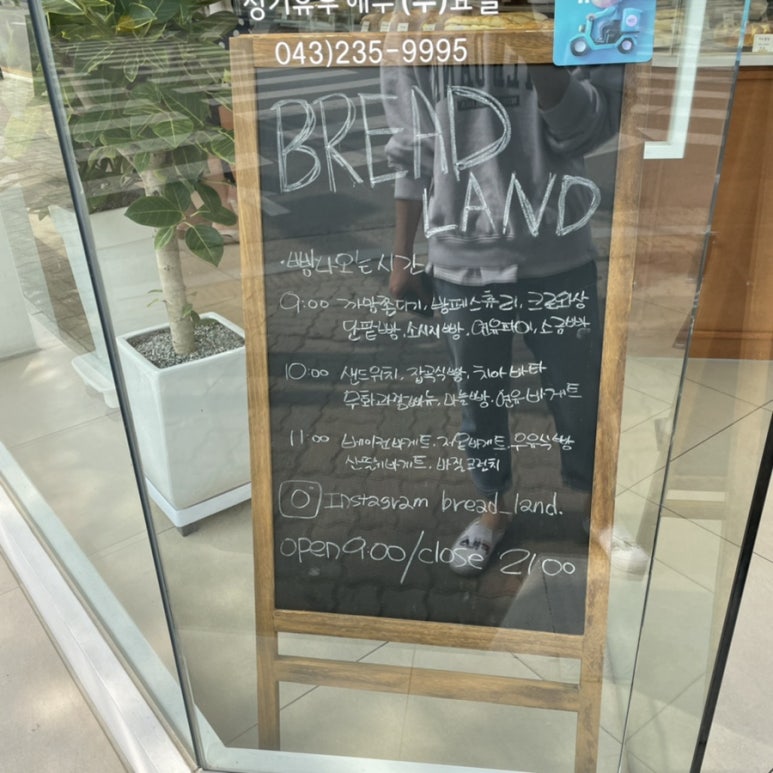 정기휴무 매주 (수)요일
043)235-9995
BREAD
LAND
·빵나오는시간
9:00 까망쫄다기, 빵페스츄리, 크로와상
단팥빵, 소시지빵, 연유파이, 소금빵
10:00 샌드위치, 잡곡식빵, 치아바타
무화과깜빠뉴, 마늘빵, 연유바게트
11:00 베이컨바게트, 저온바게트, 우유식빵
바게트, 바질크런치
Instagram bread_land.
open 9:00/close 21:00